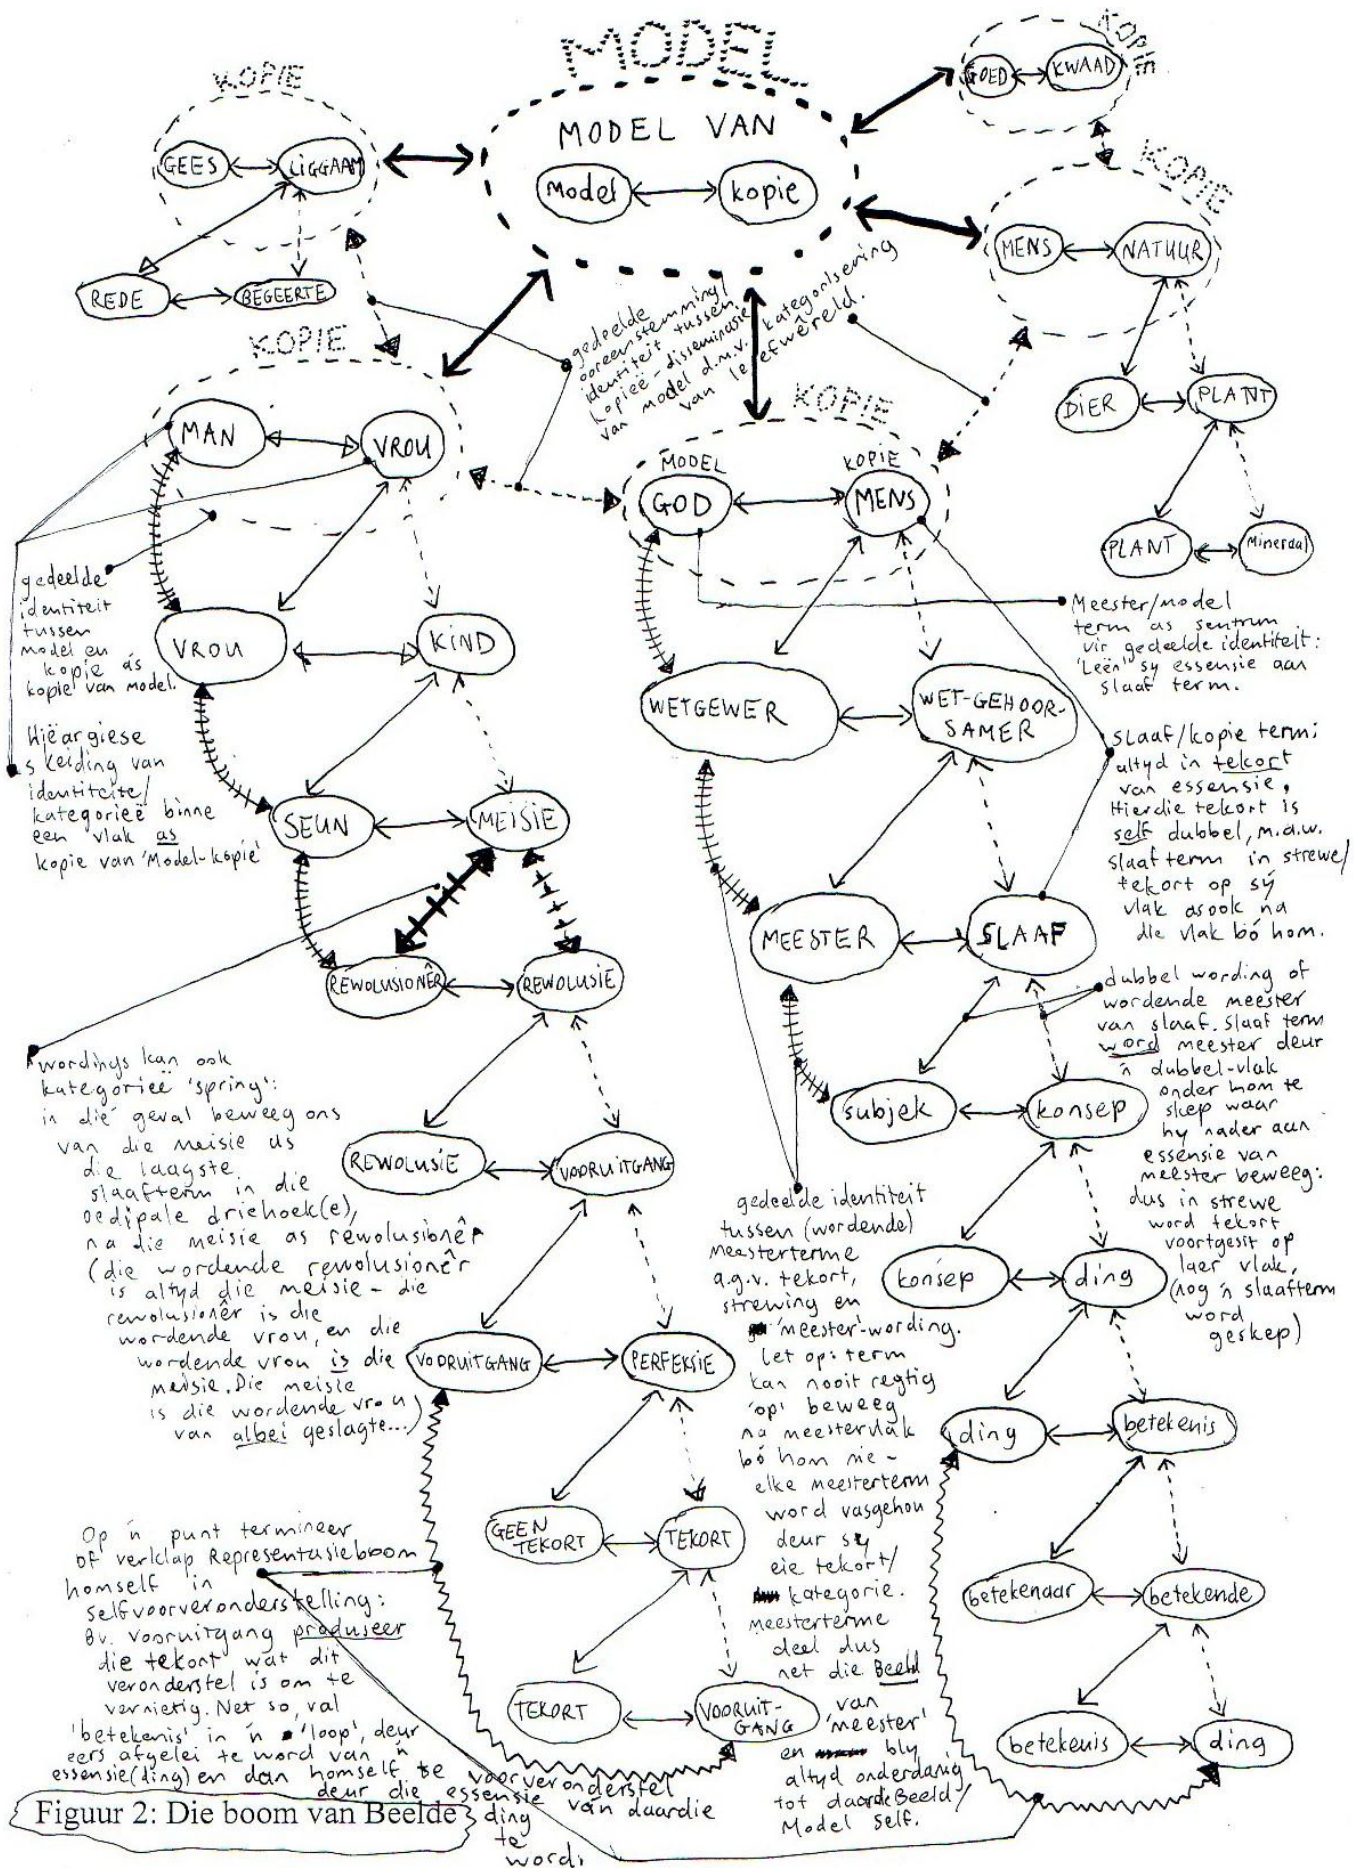 MODEL
MODEL VAN
model
kopie
KOPIE
GEES
LIGGAAM
REDE
BEGEERTE
KOPIE
GOED
KWAAD
KOPIE
MENS
NATUUR
DIER
PLANT
PLANT
Mineraal
gedeelde
ooreenstemming/
identiteit tussen
kopieë - disseminasie
van model d.m.v. kategorisering
van leefwêreld.
KOPIE
MAN
VROU
VROU
KIND
SEUN
MEISIE
REWOLUSIONÊR
REWOLUSIE
REWOLUSIE
VOORUITGANG
VOORUITGANG
PERFEKSIE
GEEN
TEKORT
TEKORT
TEKORT
VOORUIT-
GANG
KOPIE
MODEL
GOD
KOPIE
MENS
WETGEWER
WET-GEHOOR-
SAMER
MEESTER
SLAAF
subjek
konsep
konsep
ding
ding
betekenis
betekenaar
betekende
betekenis
ding
gedeelde
identiteit
tussen
model en
kopie ás
kopie van model.
Hiëargiese
skeiding van
identiteite/
kategorieë binne
een vlak as
kopie van 'Model-kopie'
wordings kan ook
kategorieë 'spring':
in dié geval beweeg ons
van die meisie as
die laagste
slaafterm in die
oedipale driehoek(e),
na die meisie as rewolusionêr
(die wordende rewolusionêr
is altyd die meisie - die
rewolusionêr is die
wordende vrou, en die
wordende vrou is die
meisie. Die meisie
is die wordende vrou
van albei geslagte...)
Op 'n punt termineer
of verklap Representasieboom
homself in
selfvoorveronderstelling:
Bv. vooruitgang produseer
die tekort wat dit
veronderstel is om te
vernietig. Net so, val
'betekenis' in 'n 'loop', deur
eers afgelei te word van 'n
essensie(ding) en dan homself te voorveronderstel
deur die essensie van daardie
ding
te
word.
Meester/model
term as sentrum
vir gedeelde identiteit:
'Leën' sy essensie aan
slaaf term.
slaaf/kopie term:
altyd in tekort
van essensie.
Hierdie tekort is
self dubbel, m.a.w.
slaaf term in strewe/
tekort op sý
vlak asook na
die vlak bó hom.
dubbel wording of
wordende meester
van slaaf. Slaaf term
word meester deur
'n dubbel-vlak
onder hom te
skep waar
hy nader aan
essensie van
meester beweeg:
dus in strewe
word tekort
voortgesit op
laer vlak,
(nog 'n slaafterm
word
geskep)
gedeelde identiteit
tussen (wordende)
meesterterme
a.g.v. tekort,
strewing en
'meester'-wording.
Let op: term
kan nooit regtig
'op' beweeg
na meestervlak
bó hom nie -
elke meesterterm
word vasgehou
deur sy
eie tekort/
kategorie.
Meesterterme
deel dus
net die Beeld
van
'meester'
en bly
altyd onderdanig
tot daardie Beeld/
Model self.
Figuur 2: Die boom van Beelde